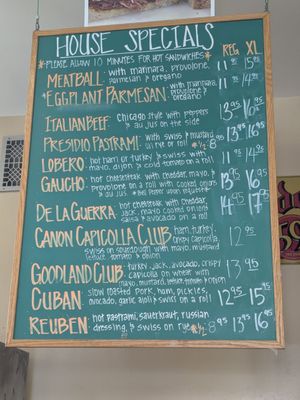 HOUSE SPECIALS
*PLEASE ALLOW 10 MINUTES FOR HOT SANDWICHES*
REG. XL
MEATBALL: with marinara, provolone, 11.95 15.25
parmesan & oregano
*EGGPLANT PARMESAN: with marinara, 11.95 14.95
provolone & oregano
ITALIAN BEEF: Chicago style with peppers 13.95 16.95
& au jus on the side
PRESIDIO PASTRAMI: with swiss & mustard *½ 8.95 13.95 16.95
on rye or roll
LOBERO: hot ham or turkey & swiss with 11.95 14.95
mayo, dijon & cold tomato on a roll
GAUCHO: hot cheesesteak with cheddar, mayo, & 13.95 16.95
provolone on a roll with cooked onions
& au jus * bell peppers upon request *
DE LA GUERRA: hot cheesesteak with cheddar, 14.95 17.95
jack, mayo, cooked onions
salsa & avocado on a roll
CANON CAPICOLLA CLUB: ham, turkey, 12.95
crispy capicolla,
swiss on sourdough with mayo, mustard
lettuce tomato & onion
GOODLAND CLUB: turkey, jack, avocado, crispy 13.95
capicolla on wheat with
mayo, mustard, lettuce, tomato & onion
CUBAN: slow roasted pork, ham, pickles, 12.95 15.95
avocado, garlic aioli & swiss on a roll
REUBEN: hot pastrami, sauerkraut, russian
dressing, & swiss on rye *½ 8.95 13.95 16.95